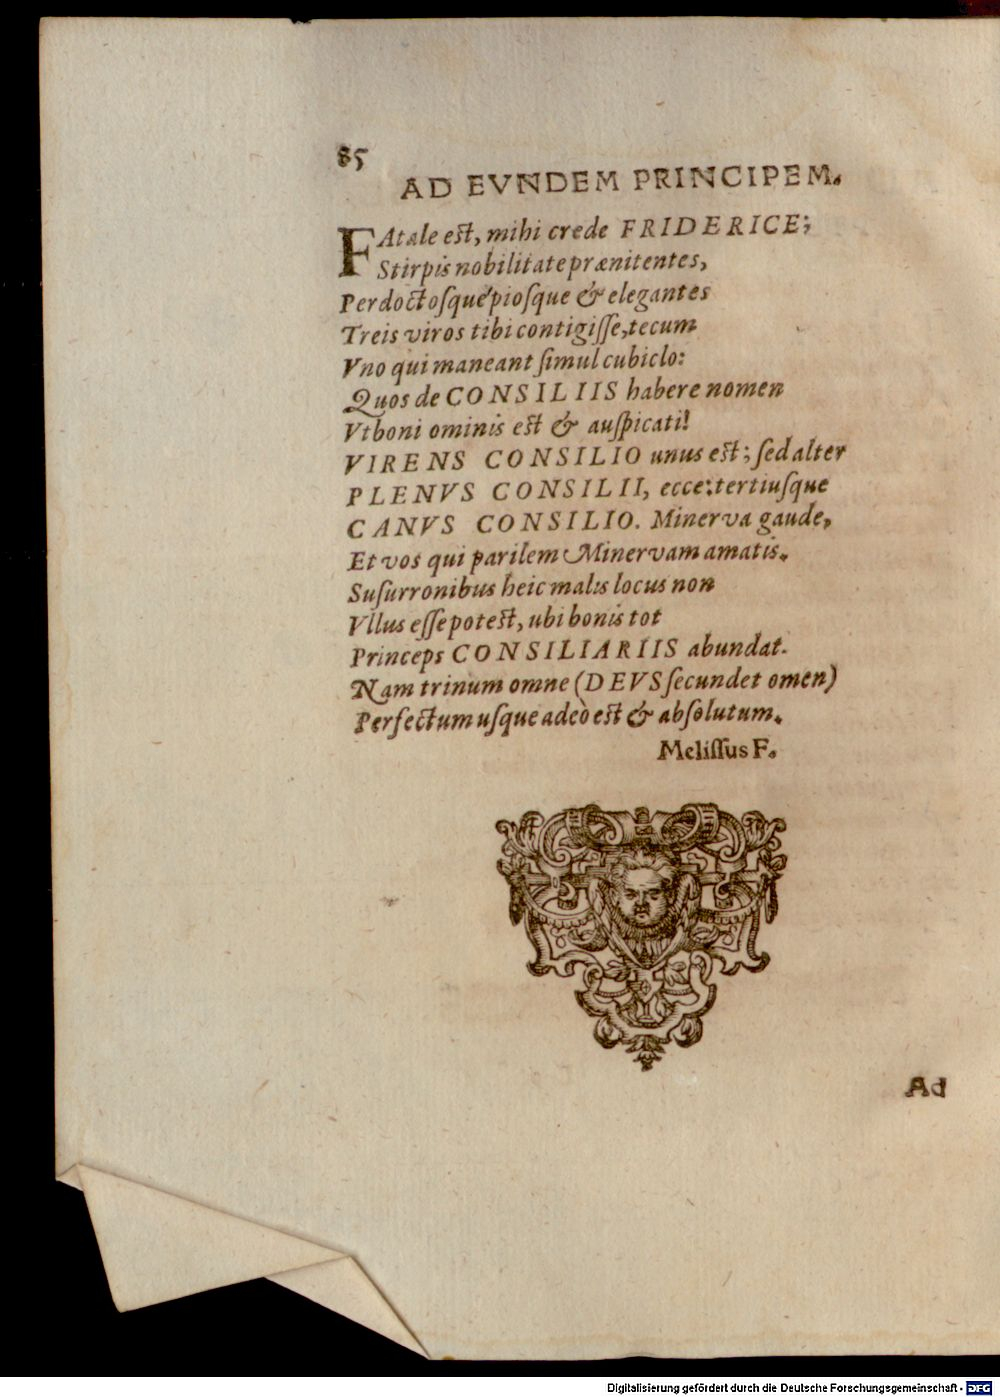 85
AD EVNDEM PRINCIPEM.
FAtale eſt, mihi crede FRIDERICE;
Stirpis nobilitate prænitentes,
Perdoctoſque pioſque & elegantes
Treis viros tibi contigiſſe, tecum
Vno qui maneant ſimul cubiclo:
Quos de CONSILIIS habere nomen
Vt boni ominis eſt & auſpicati!
VIRENS CONSILIO unus eſt; ſed alter
PLENVS CONSILII, ecce: tertiuſque
CANVS CONSILIO. Minerva gaude,
Et vos qui parilem Minervam amatis.
Suſurronibus heic malis locus non
Vllus eſſe poteſt, ubi bonis tot
Princeps CONSILIARIIS abundat.
Nam trinum omne (DEVS ſecundet omen)
Perfectum uſque adeò eſt & abſolutum.
Meliſſus F.
Ad
Digitalisierung gefördert durch die Deutsche Forschungsgemeinschaft - DFG